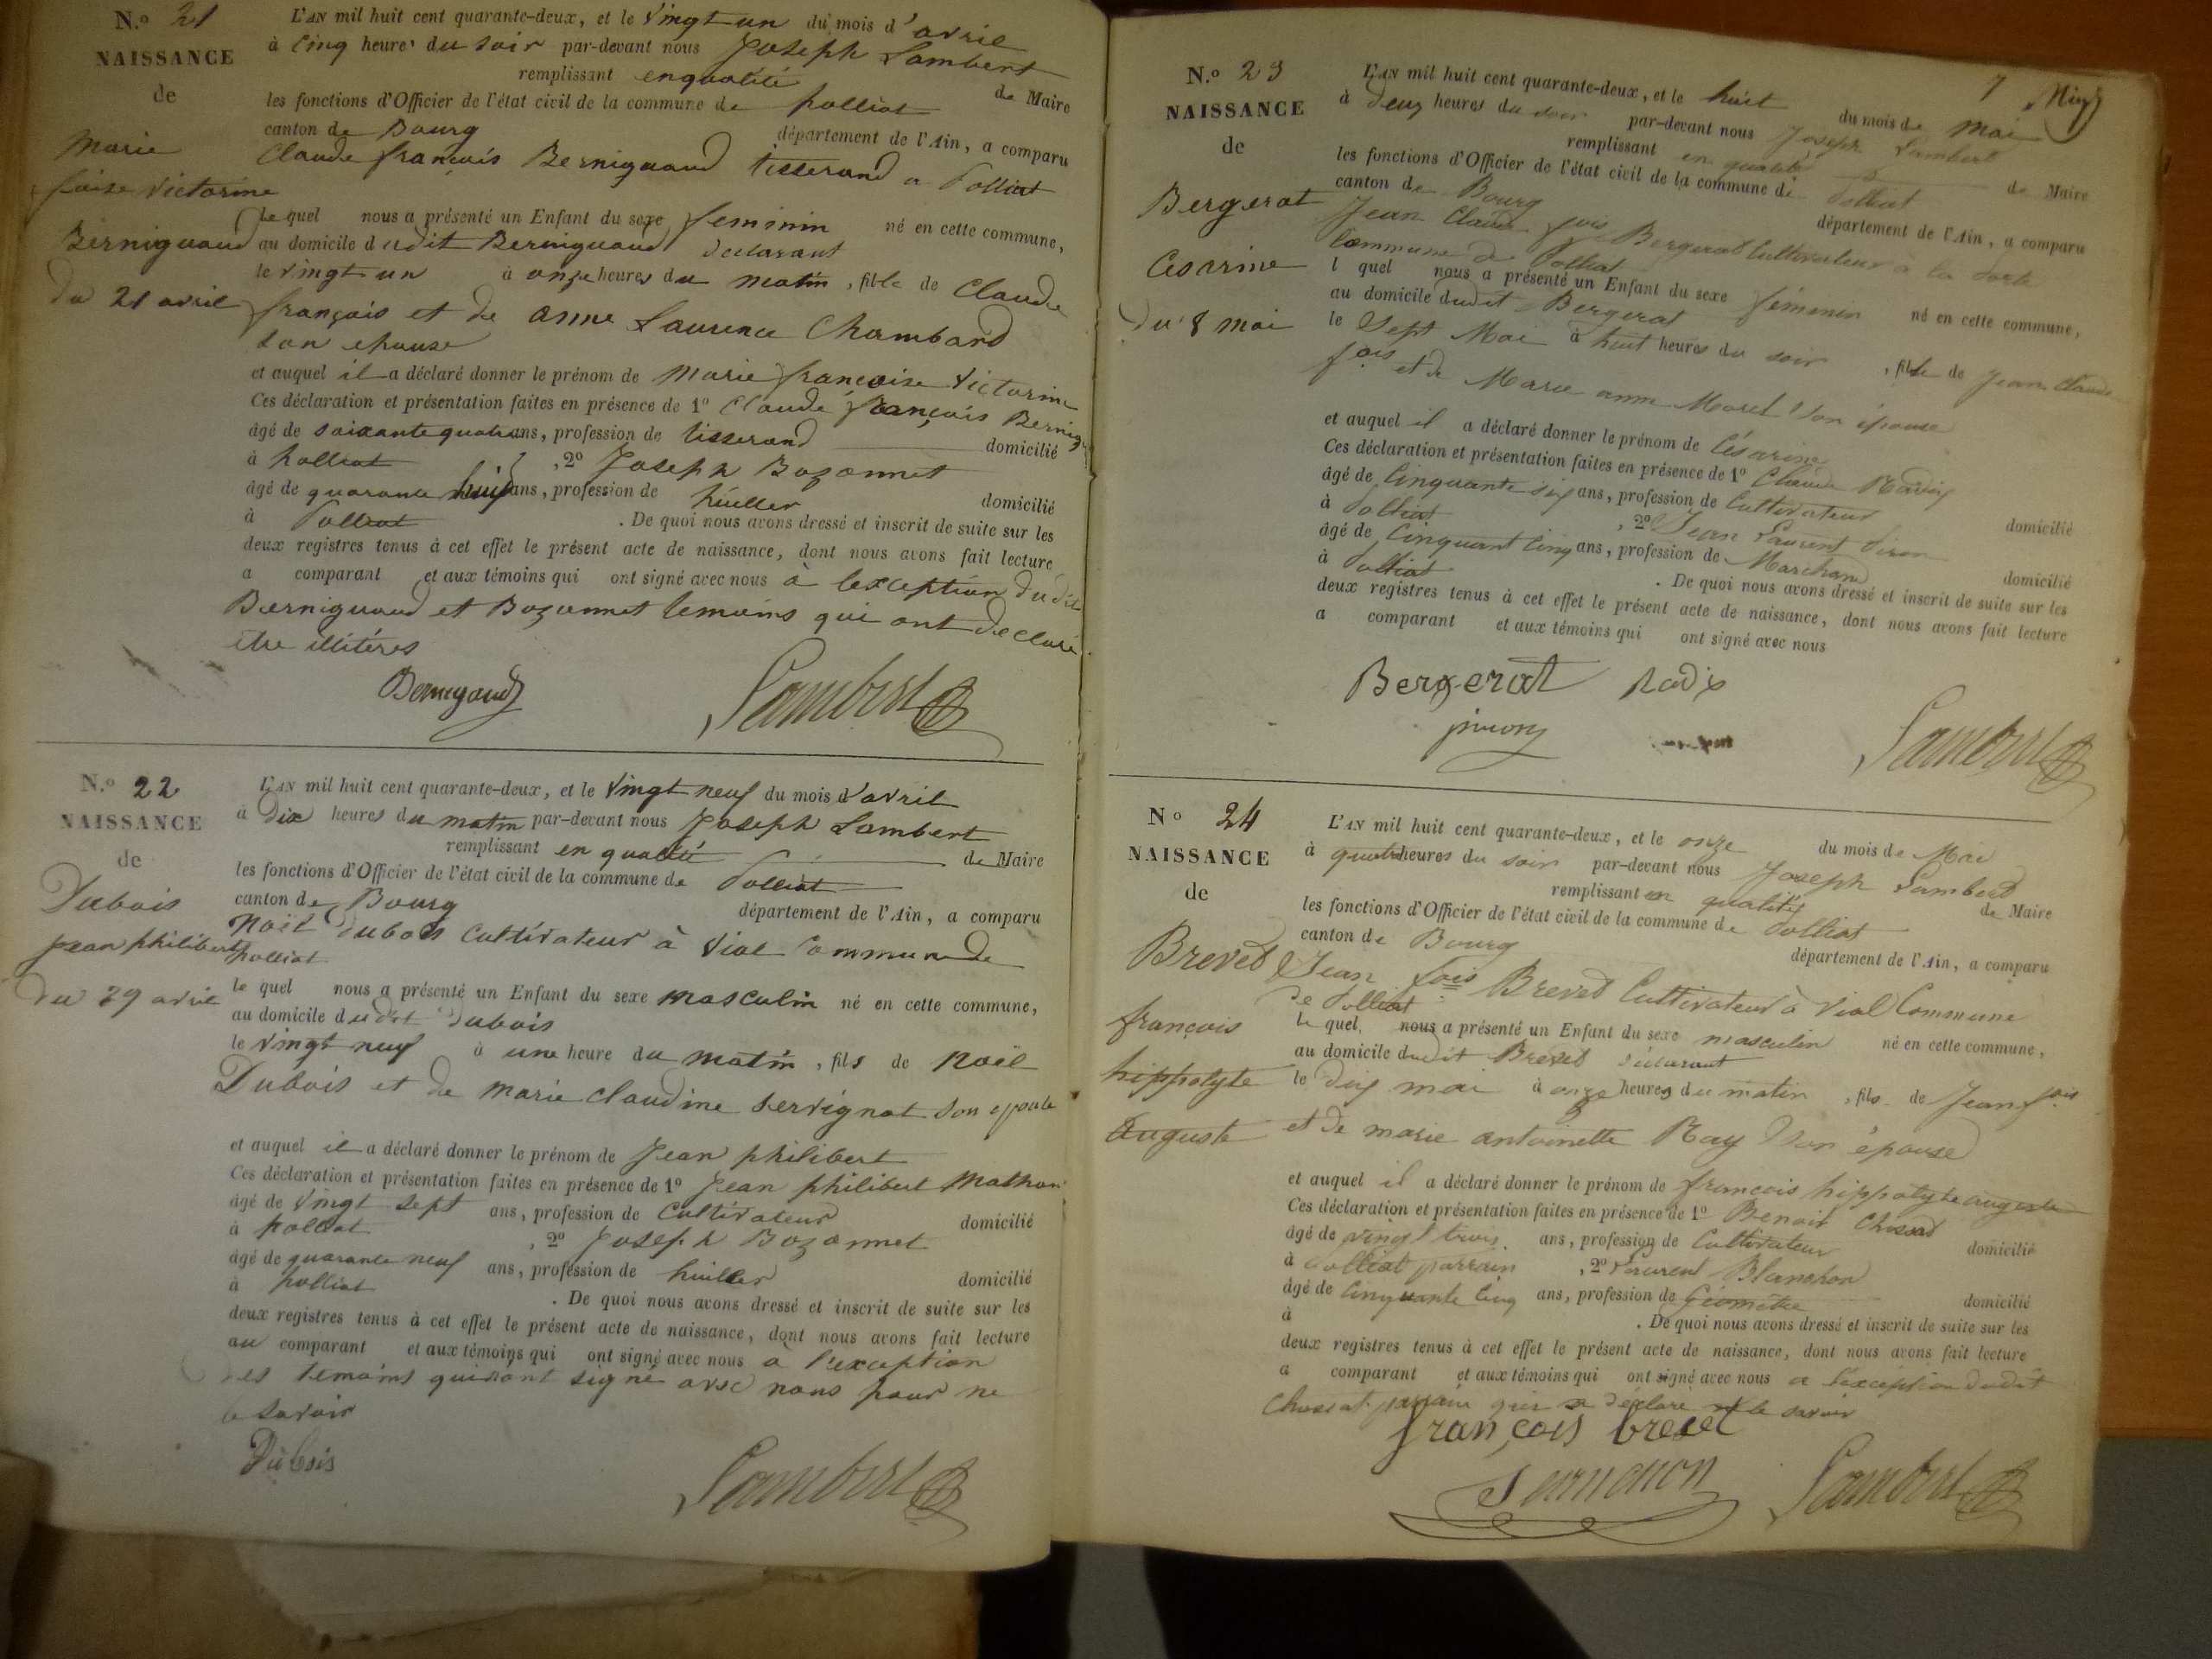 N.º 21
NAISSANCE
de
Marie
foise victorine
Berniguaud
du 21 avril
L'AN mil huit cent quarante-deux, et le Vingt un du mois d'avril
à Cinq heures du soir par-devant nous Joseph Lambert
remplissant en qualité de Maire
les fonctions d'Officier de l'état civil de la commune de polliat
canton de Bourg département de l'Ain, a comparu
Claude françois Berniguaud tisserand a Polliat
le quel nous a présenté un Enfant du sexe feminin né en cette commune,
au domicile dudit Berniguaud declarant
le vingt un à onze heures du matin, fille de Claude
françois et de anne Laurence Chambard
son epouse
et auquel il a déclaré donner le prénom de Marie françoise victorine
Ces déclaration et présentation faites en présence de 1º Claude françois Bernig
âgé de soixante quatre ans, profession de tisserand domicilié
à polliat, 2º Joseph Bozonnet
âgé de quarante huit ans, profession de huillier domicilié
à Polliat. De quoi nous avons dressé et inscrit de suite sur les
deux registres tenus à cet effet le présent acte de naissance, dont nous avons fait lecture
a comparant et aux témoins qui ont signé avec nous à l'exception du dit
Berniguaud et Bozonnet temoins qui ont declaré
etre illitéres
Bernigaud Lambert
N.º 22
NAISSANCE
de
Dubois
jean philibert
du 29 avril
L'AN mil huit cent quarante-deux, et le Vingt neuf du mois d'avril
à Dix heures du matin par-devant nous Joseph Lambert
remplissant en qualité de Maire
les fonctions d'Officier de l'état civil de la commune de Polliat
canton de Bourg département de l'Ain, a comparu
Noël Dubois Cultivateur à Vial Commune de
Polliat
le quel nous a présenté un Enfant du sexe masculin né en cette commune,
au domicile dudit Dubois
le vingt neuf à une heure du matin, fils de Noël
Dubois et de marie claudine servignat son epouse
et auquel il a déclaré donner le prénom de Jean philibert
Ces déclaration et présentation faites en présence de 1º Jean philibert Mathon
âgé de Vingt sept ans, profession de Cultivateur domicilié
à polliat, 2º Joseph Bozonnet
âgé de quarante neuf ans, profession de huillier domicilié
à polliat. De quoi nous avons dressé et inscrit de suite sur les
deux registres tenus à cet effet le présent acte de naissance, dont nous avons fait lecture
au comparant et aux témoins qui ont signé avec nous à l'exception
des temoins qui n'ont signé avec nous pour ne
le savoir
Dubois Lambert
7
N.º 23
NAISSANCE
de
Bergerat
Cesarine
du 8 mai
L'AN mil huit cent quarante-deux, et le huit du mois de Mai
à deux heures du soir par-devant nous Joseph Lambert
remplissant en qualité de Maire
les fonctions d'Officier de l'état civil de la commune de Polliat
canton de Bourg département de l'Ain, a comparu
Jean Claude fois Bergerat Cultivateur à la
Commune de Polliat
l quel nous a présenté un Enfant du sexe féminin né en cette commune,
au domicile dudit Bergerat
le Sept Mai à huit heures du soir, fille de Jean Claude
fois et de Marie anne Morel son épouse
et auquel il a déclaré donner le prénom de Césarine
Ces déclaration et présentation faites en présence de 1º Claude Radix
âgé de Cinquante six ans, profession de Cultivateur domicilié
à Polliat, 2º Jean Laurent Piron
âgé de Cinquant Cinq ans, profession de Marchand domicilié
à Polliat. De quoi nous avons dressé et inscrit de suite sur les
deux registres tenus à cet effet le présent acte de naissance, dont nous avons fait lecture
a comparant et aux témoins qui ont signé avec nous
Bergerat Radix
Lambert
Nº 24
NAISSANCE
de
Brevet
françois
hippolyte
Auguste
L'AN mil huit cent quarante-deux, et le onze du mois de Mai
à quatre heures du soir par-devant nous Joseph Lambert
remplissant en qualité de Maire
les fonctions d'Officier de l'état civil de la commune de Polliat
canton de Bourg département de l'Ain, a comparu
Jean fois Brevet Cultivateur à Vial Commune
de Polliat
le quel nous a présenté un Enfant du sexe masculin né en cette commune,
au domicile dudit Brevet déclarant
le dix mai à onze heures du matin, fils de Jean fois
et de marie antoinette Ray son épouse
et auquel il a déclaré donner le prénom de françois hippolyte auguste
Ces déclaration et présentation faites en présence de 1º Benoit Chossat
âgé de vingt trois ans, profession de Cultivateur domicilié
à Polliat parrain, 2º Laurent Blanchon
âgé de Cinquante Cinq ans, profession de Géomètre domicilié
à . De quoi nous avons dressé et inscrit de suite sur les
deux registres tenus à cet effet le présent acte de naissance, dont nous avons fait lecture
a comparant et aux témoins qui ont signé avec nous a l'exception dudit
Chossat parrain qui a déclaré ne le savoir
françois brevet
Lambert